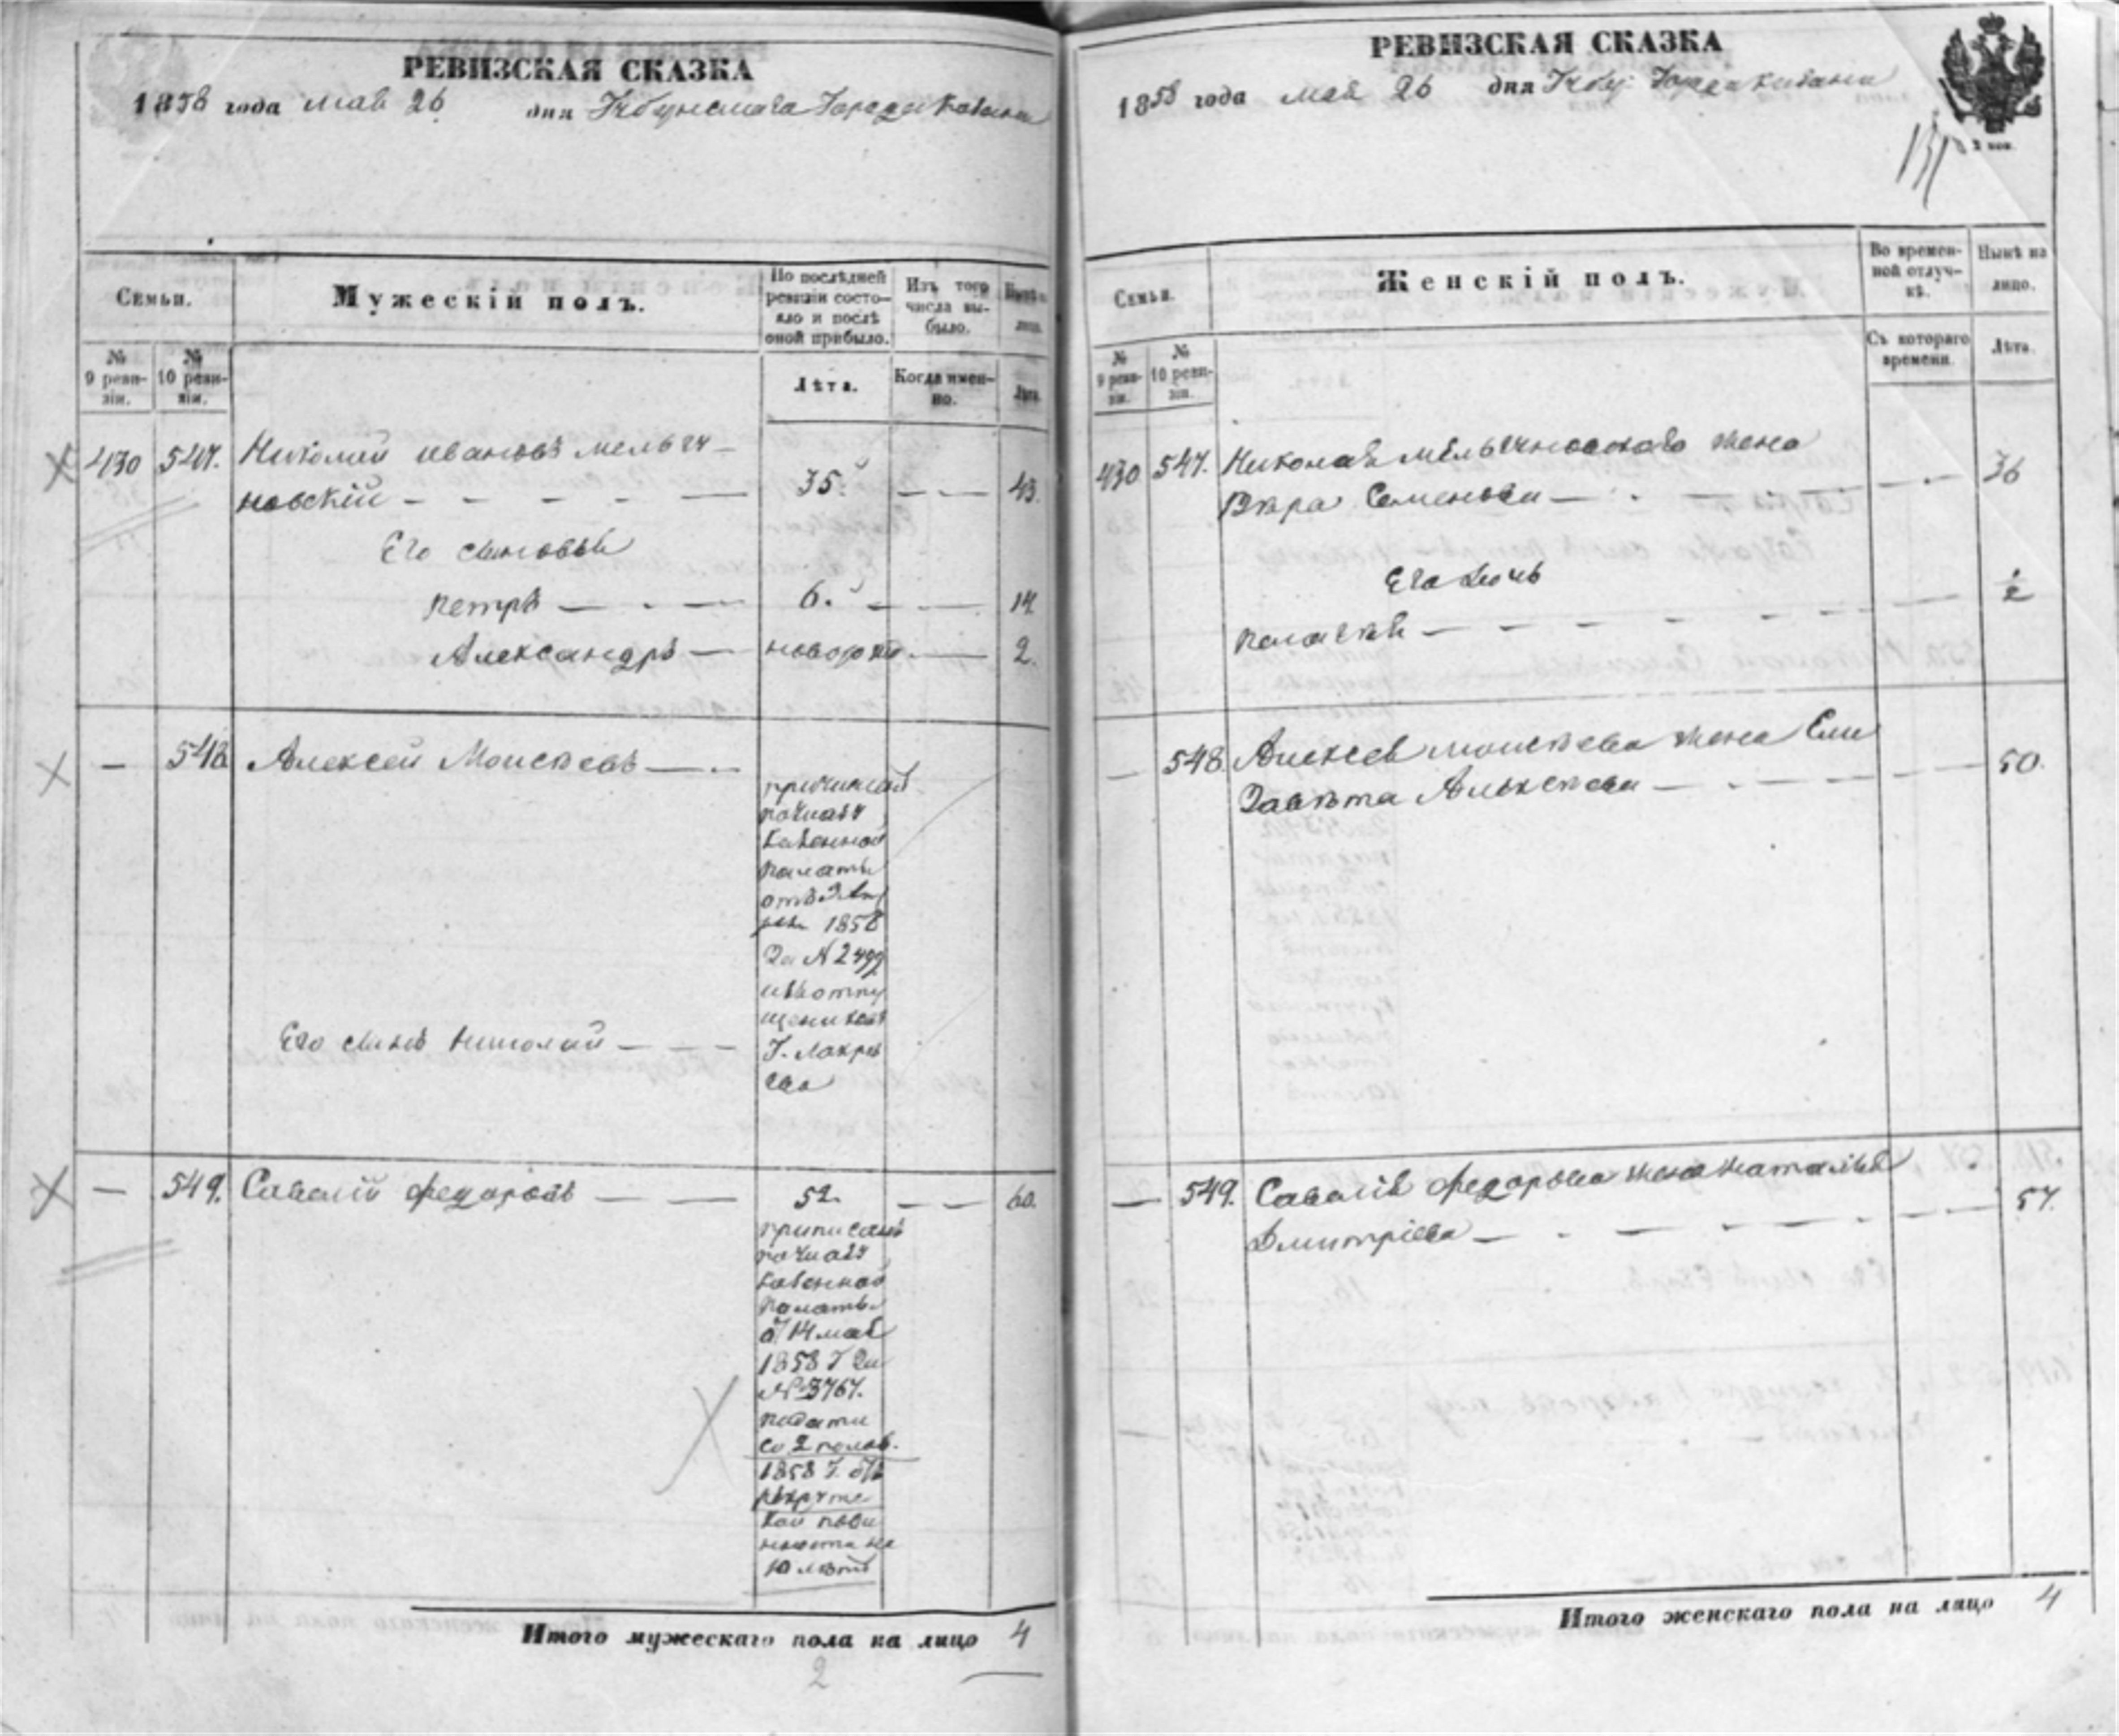 РЕВИЗСКАЯ СКАЗКА
1858 года мая 26 дня Города Казани
Семьи.
Мужескій полъ.
По послѣдней ревизіи состояло и послѣ оной прибыло.
Изъ того числа выбыло.
Нынѣ на лицо.
№ 9 ревизіи.
№ 10 ревизіи.
Лѣта.
Когда именно.
Лѣта.
430 547. Николай Ивановъ Мельни-
новскій 35. 43.
Его сыновья
Петръ 6. 14.
Александръ новорож. 2.
— 548 Алексей Моисѣевъ
Казенной
палаты
1858
За № 2499
Его сынъ Николай
— 549. Савелій Федоровъ 52. 60.
приписанъ
Казенной
Палаты
от 14 мая
1858 г за
№ 3767.
подати
со 2 полов.
1858 г. отъ
рекрутс
кой пови
нности на
10 лѣтъ
Итого мужескаго пола на лицо 4
2
РЕВИЗСКАЯ СКАЗКА
1858 года мая 26 дня Города Казани
Семьи.
Женскій полъ.
Во временной отлучкѣ.
Нынѣ на лицо.
№ 9 ревизіи.
№ 10 ревизіи.
Съ котораго времени.
Лѣта.
430 547. Николая жена
Вѣра Семенова 36
Его дочь
548. Алексея Моисѣева жена Ели
завѣта Алексѣева 50.
— 549. Савелія Федорова жена Наталья
Дмитріева 57.
Итого женскаго пола на лицо 4